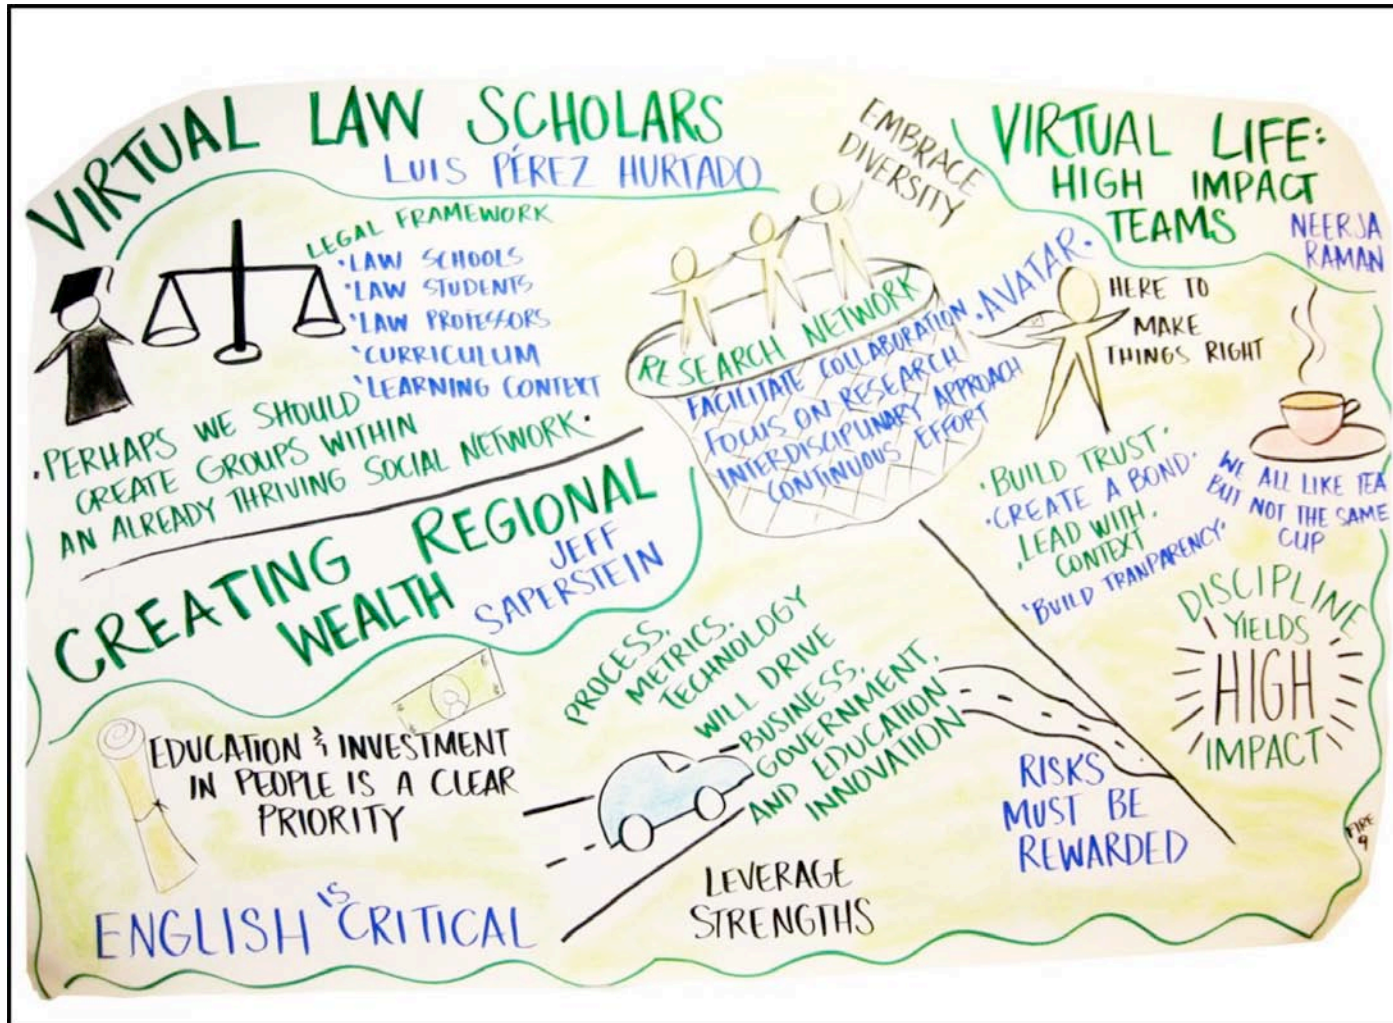 VIRTUAL LAW SCHOLARS
LUIS PÉREZ HURTADO
LEGAL FRAMEWORK
• LAW SCHOOLS
• LAW STUDENTS
• LAW PROFESSORS
• CURRICULUM
• LEARNING CONTEXT
• PERHAPS WE SHOULD
CREATE GROUPS WITHIN
AN ALREADY THRIVING SOCIAL NETWORK •
EMBRACE
DIVERSITY
RESEARCH NETWORK
FACILITATE COLLABORATION
FOCUS ON RESEARCH
INTERDISCIPLINARY APPROACH
CONTINUOUS EFFORT
VIRTUAL LIFE:
HIGH IMPACT
TEAMS
NEERJA
RAMAN
• AVATAR •
HERE TO
MAKE
THINGS RIGHT
• BUILD TRUST •
• CREATE A BOND •
• LEAD WITH •
CONTEXT
• BUILD TRANPARENCY •
WE ALL LIKE TEA
BUT NOT THE SAME
CUP
DISCIPLINE
YIELDS
HIGH
IMPACT
CREATING REGIONAL
WEALTH
JEFF
SAPERSTEIN
EDUCATION & INVESTMENT
IN PEOPLE IS A CLEAR
PRIORITY
ENGLISH IS CRITICAL
PROCESS,
METRICS,
TECHNOLOGY
WILL DRIVE
BUSINESS,
GOVERNMENT,
AND EDUCATION
INNOVATION
LEVERAGE
STRENGTHS
RISKS
MUST BE
REWARDED
FIRE
9